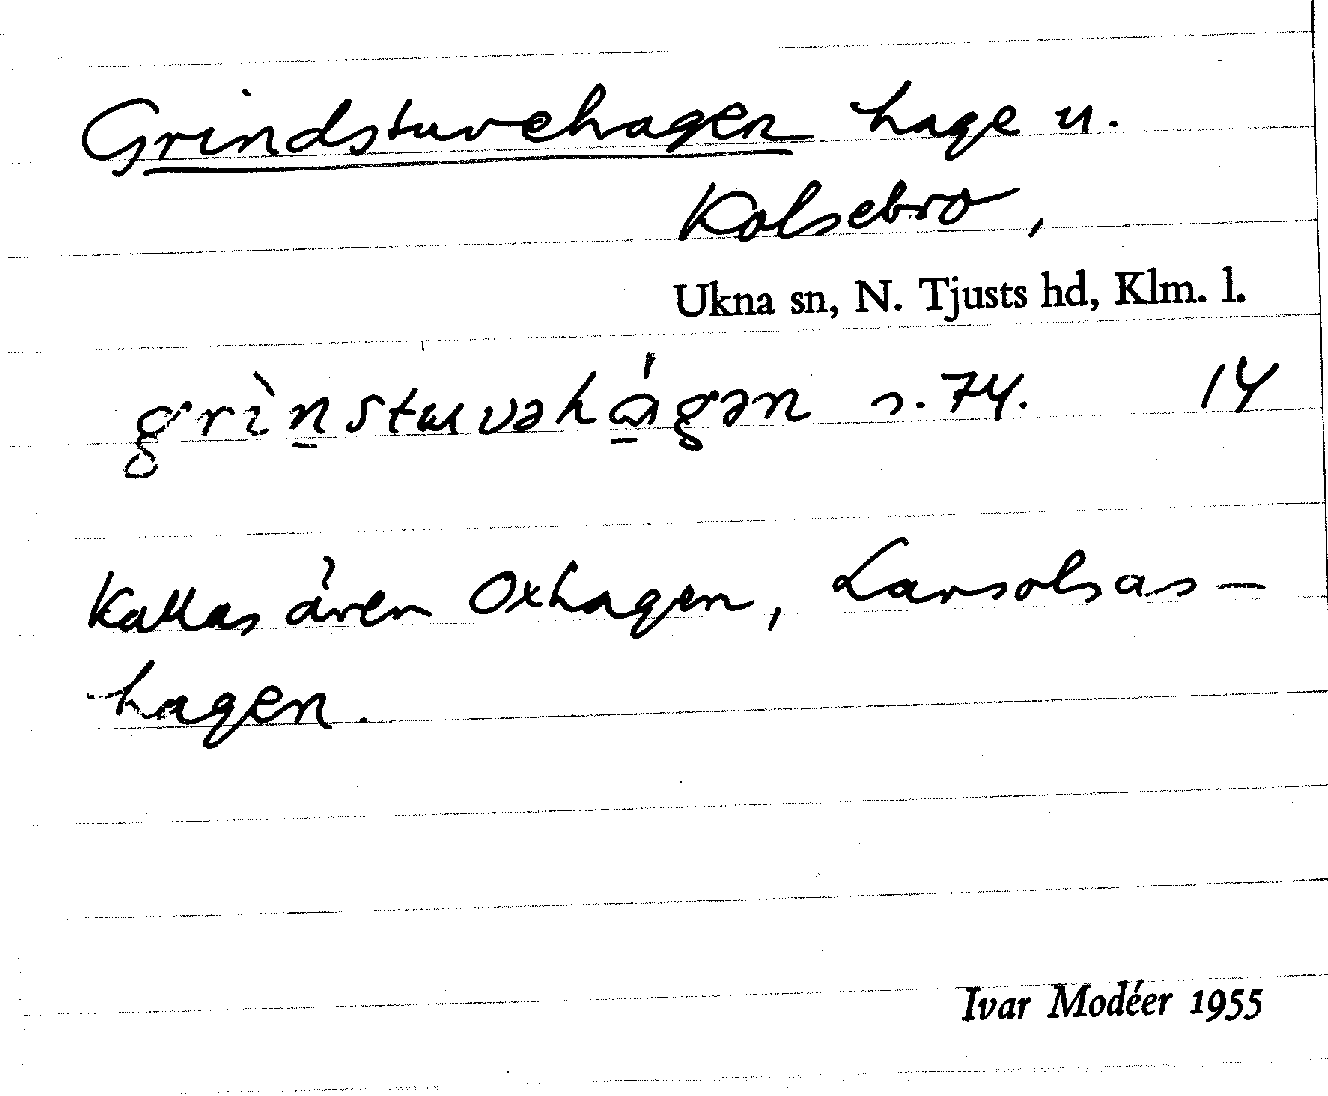 Grindstuvehagen hage u.
Kolsebro,
Ukna sn, N. Tjusts hd, Klm. l.
grìn̠stuvəhɑ̠́gən s. 74. 14
Kallas även Oxhagen, Larsolsas-
hagen.
Ivar Modéer 1955